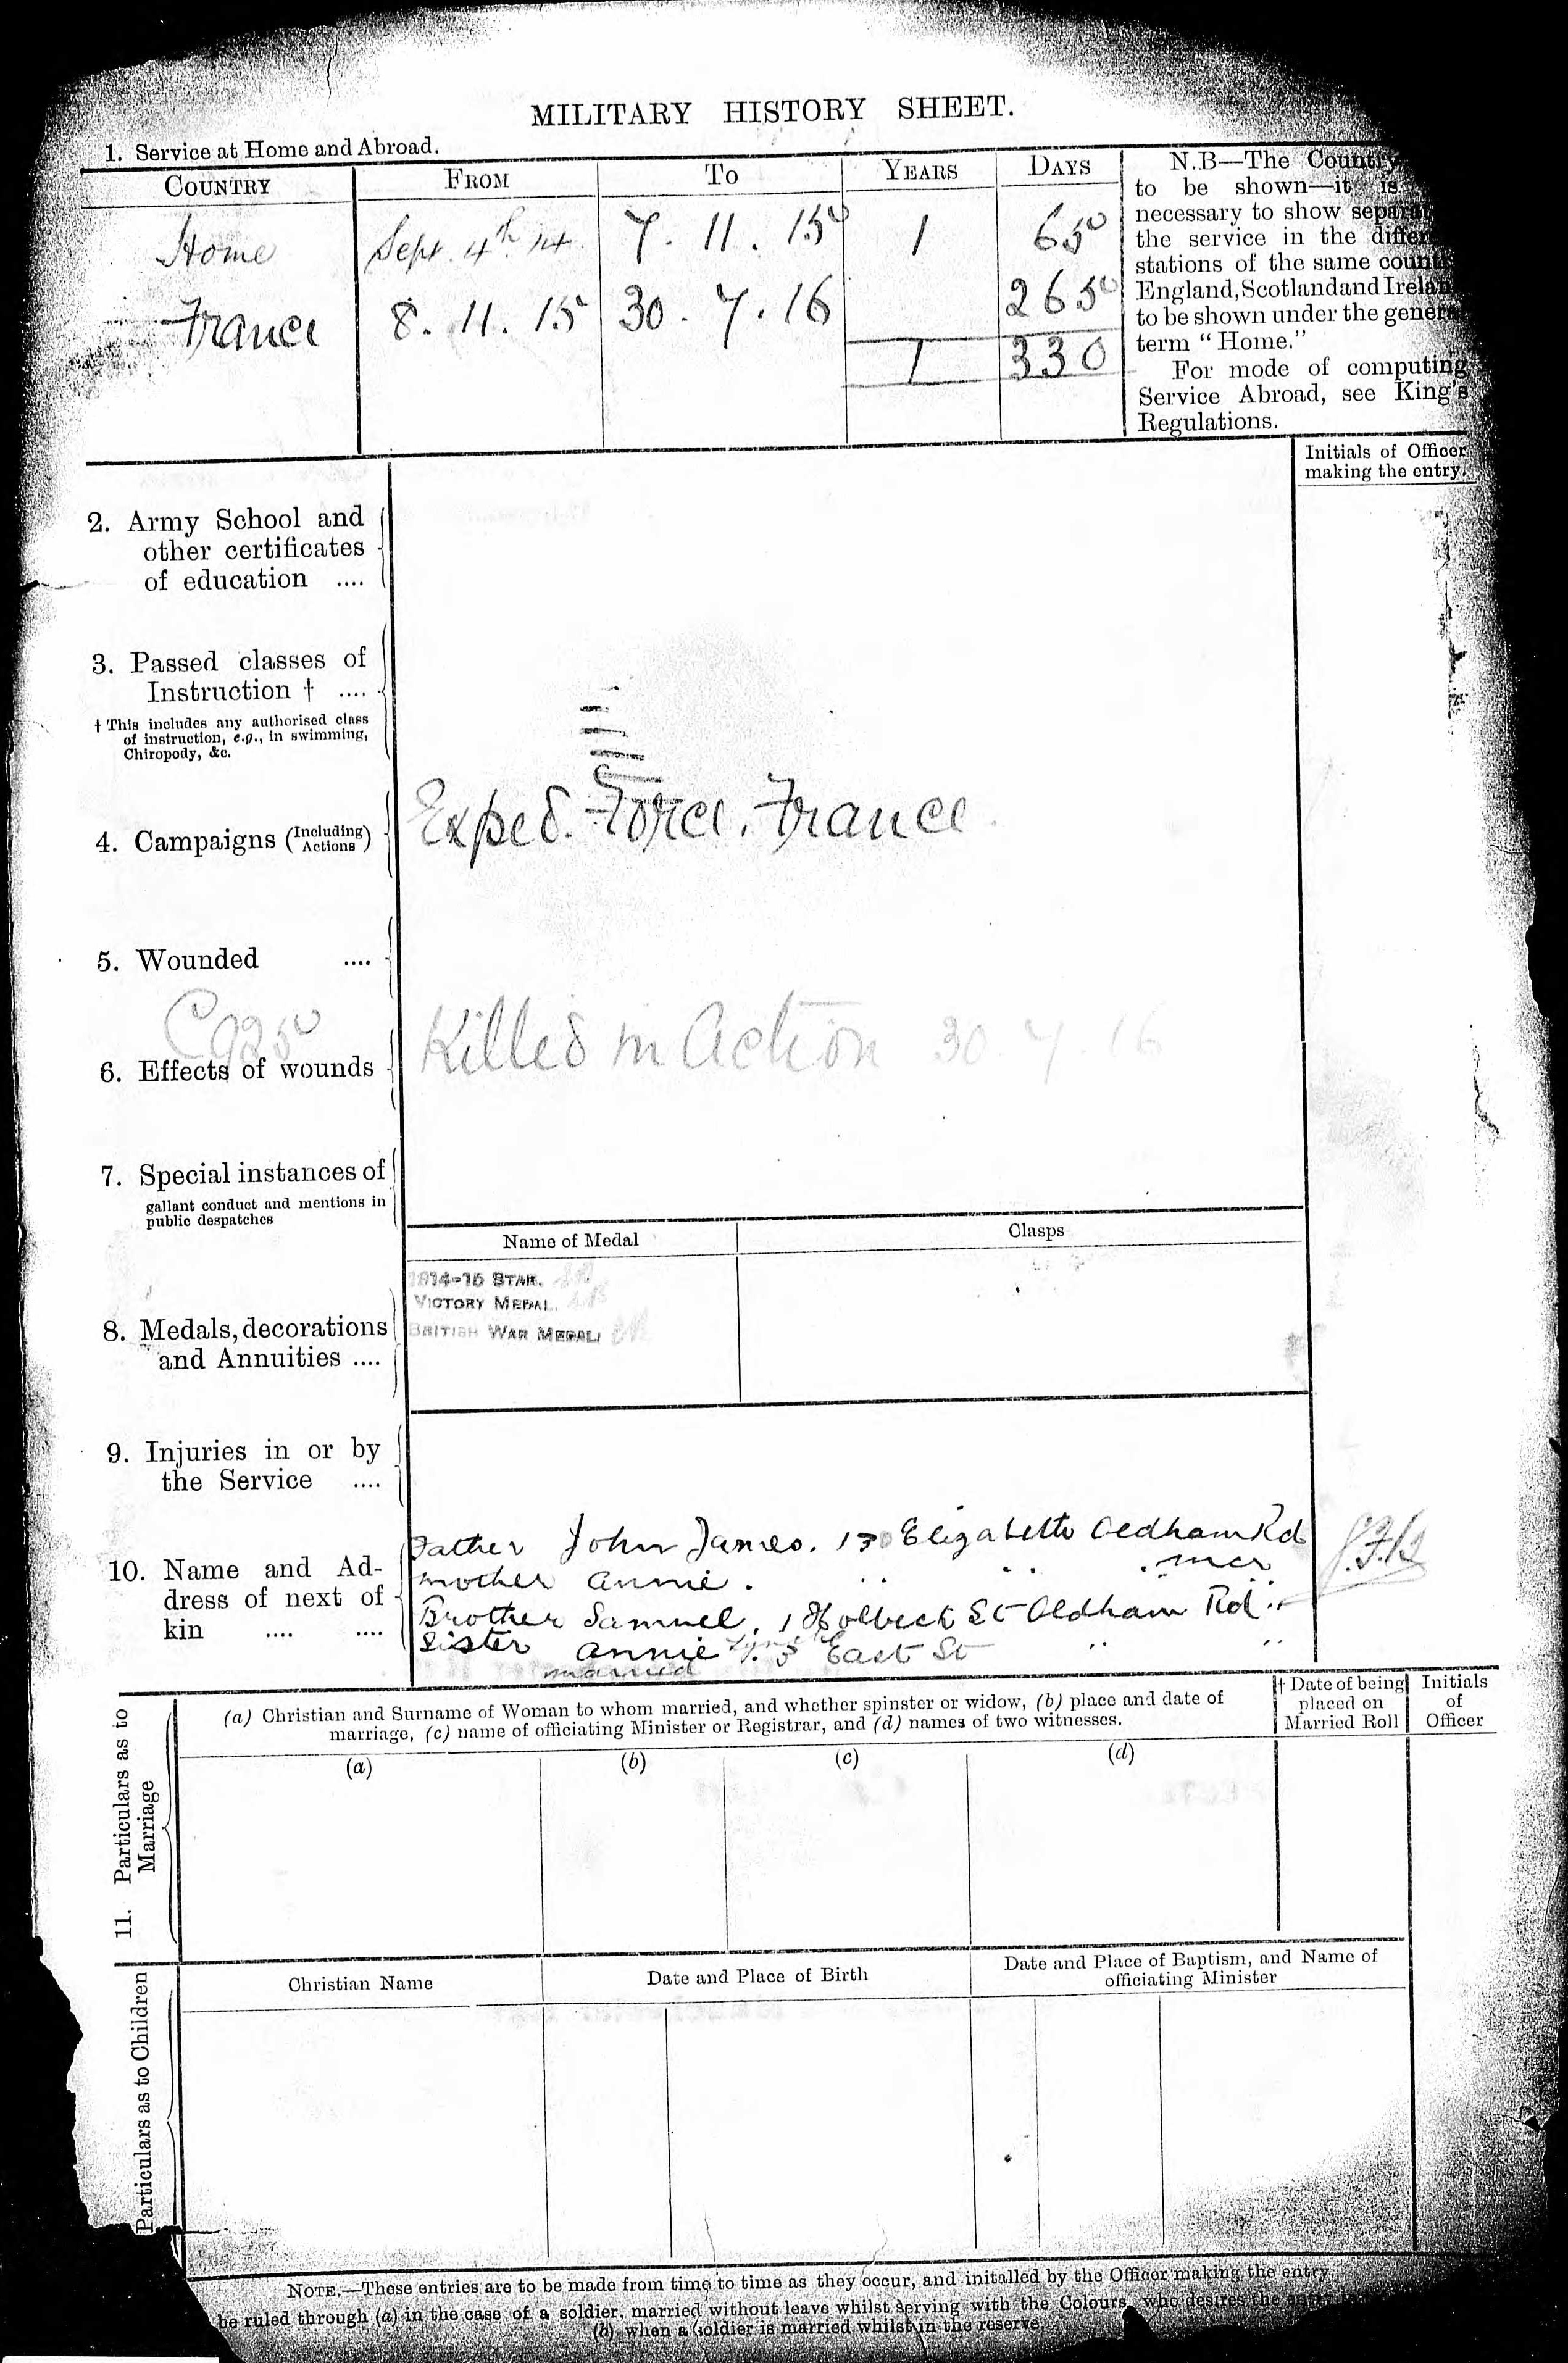 MILITARY HISTORY SHEET.
1. Service at Home and Abroad.
COUNTRY FROM TO YEARS DAYS
Home Sept. 4th 14. 7. 11. 15 1 65
France 8. 11. 15 30. 7. 16 265
1 330
N.B—The Country
to be shown—it is
necessary to show separ
the service in the differ
stations of the same coun
England, Scotland and Irela
to be shown under the genera
term "Home."
For mode of computing
Service Abroad, see King's
Regulations.
Initials of Officer
making the entry.
2. Army School and
other certificates
of education ....
3. Passed classes of
Instruction † ....
† This includes any authorised class
of instruction, e.g., in swimming,
Chiropody, &c.
4. Campaigns (Including Actions) Exped. Force. France
5. Wounded ....
C925
6. Effects of wounds Killed in Action 30 7. 16
7. Special instances of
gallant conduct and mentions in
public despatches
Name of Medal Clasps
1914-15 STAR.
VICTORY MEDAL.
BRITISH WAR MEDAL.
8. Medals, decorations
and Annuities ....
9. Injuries in or by
the Service ....
10. Name and Ad-
dress of next of
kin .... ....
Father John James. Elizabeth Oldham Rd
Mother Annie. " " Mcr
Brother Samuel. 1 Holbeck St Oldham Rd "
Sister Annie 5 East St " "
married
11. Particulars as to
Marriage
(a) Christian and Surname of Woman to whom married, and whether spinster or widow, (b) place and date of
marriage, (c) name of officiating Minister or Registrar, and (d) names of two witnesses.
† Date of being
placed on
Married Roll
Initials
of
Officer
(a) (b) (c) (d)
Particulars as to Children
Christian Name Date and Place of Birth Date and Place of Baptism, and Name of
officiating Minister
NOTE.—These entries are to be made from time to time as they occur, and initalled by the Officer making the entry.
be ruled through (a) in the case of a soldier, married without leave whilst serving with the Colours, who desires the
(b) when a soldier is married whilst in the reserve.